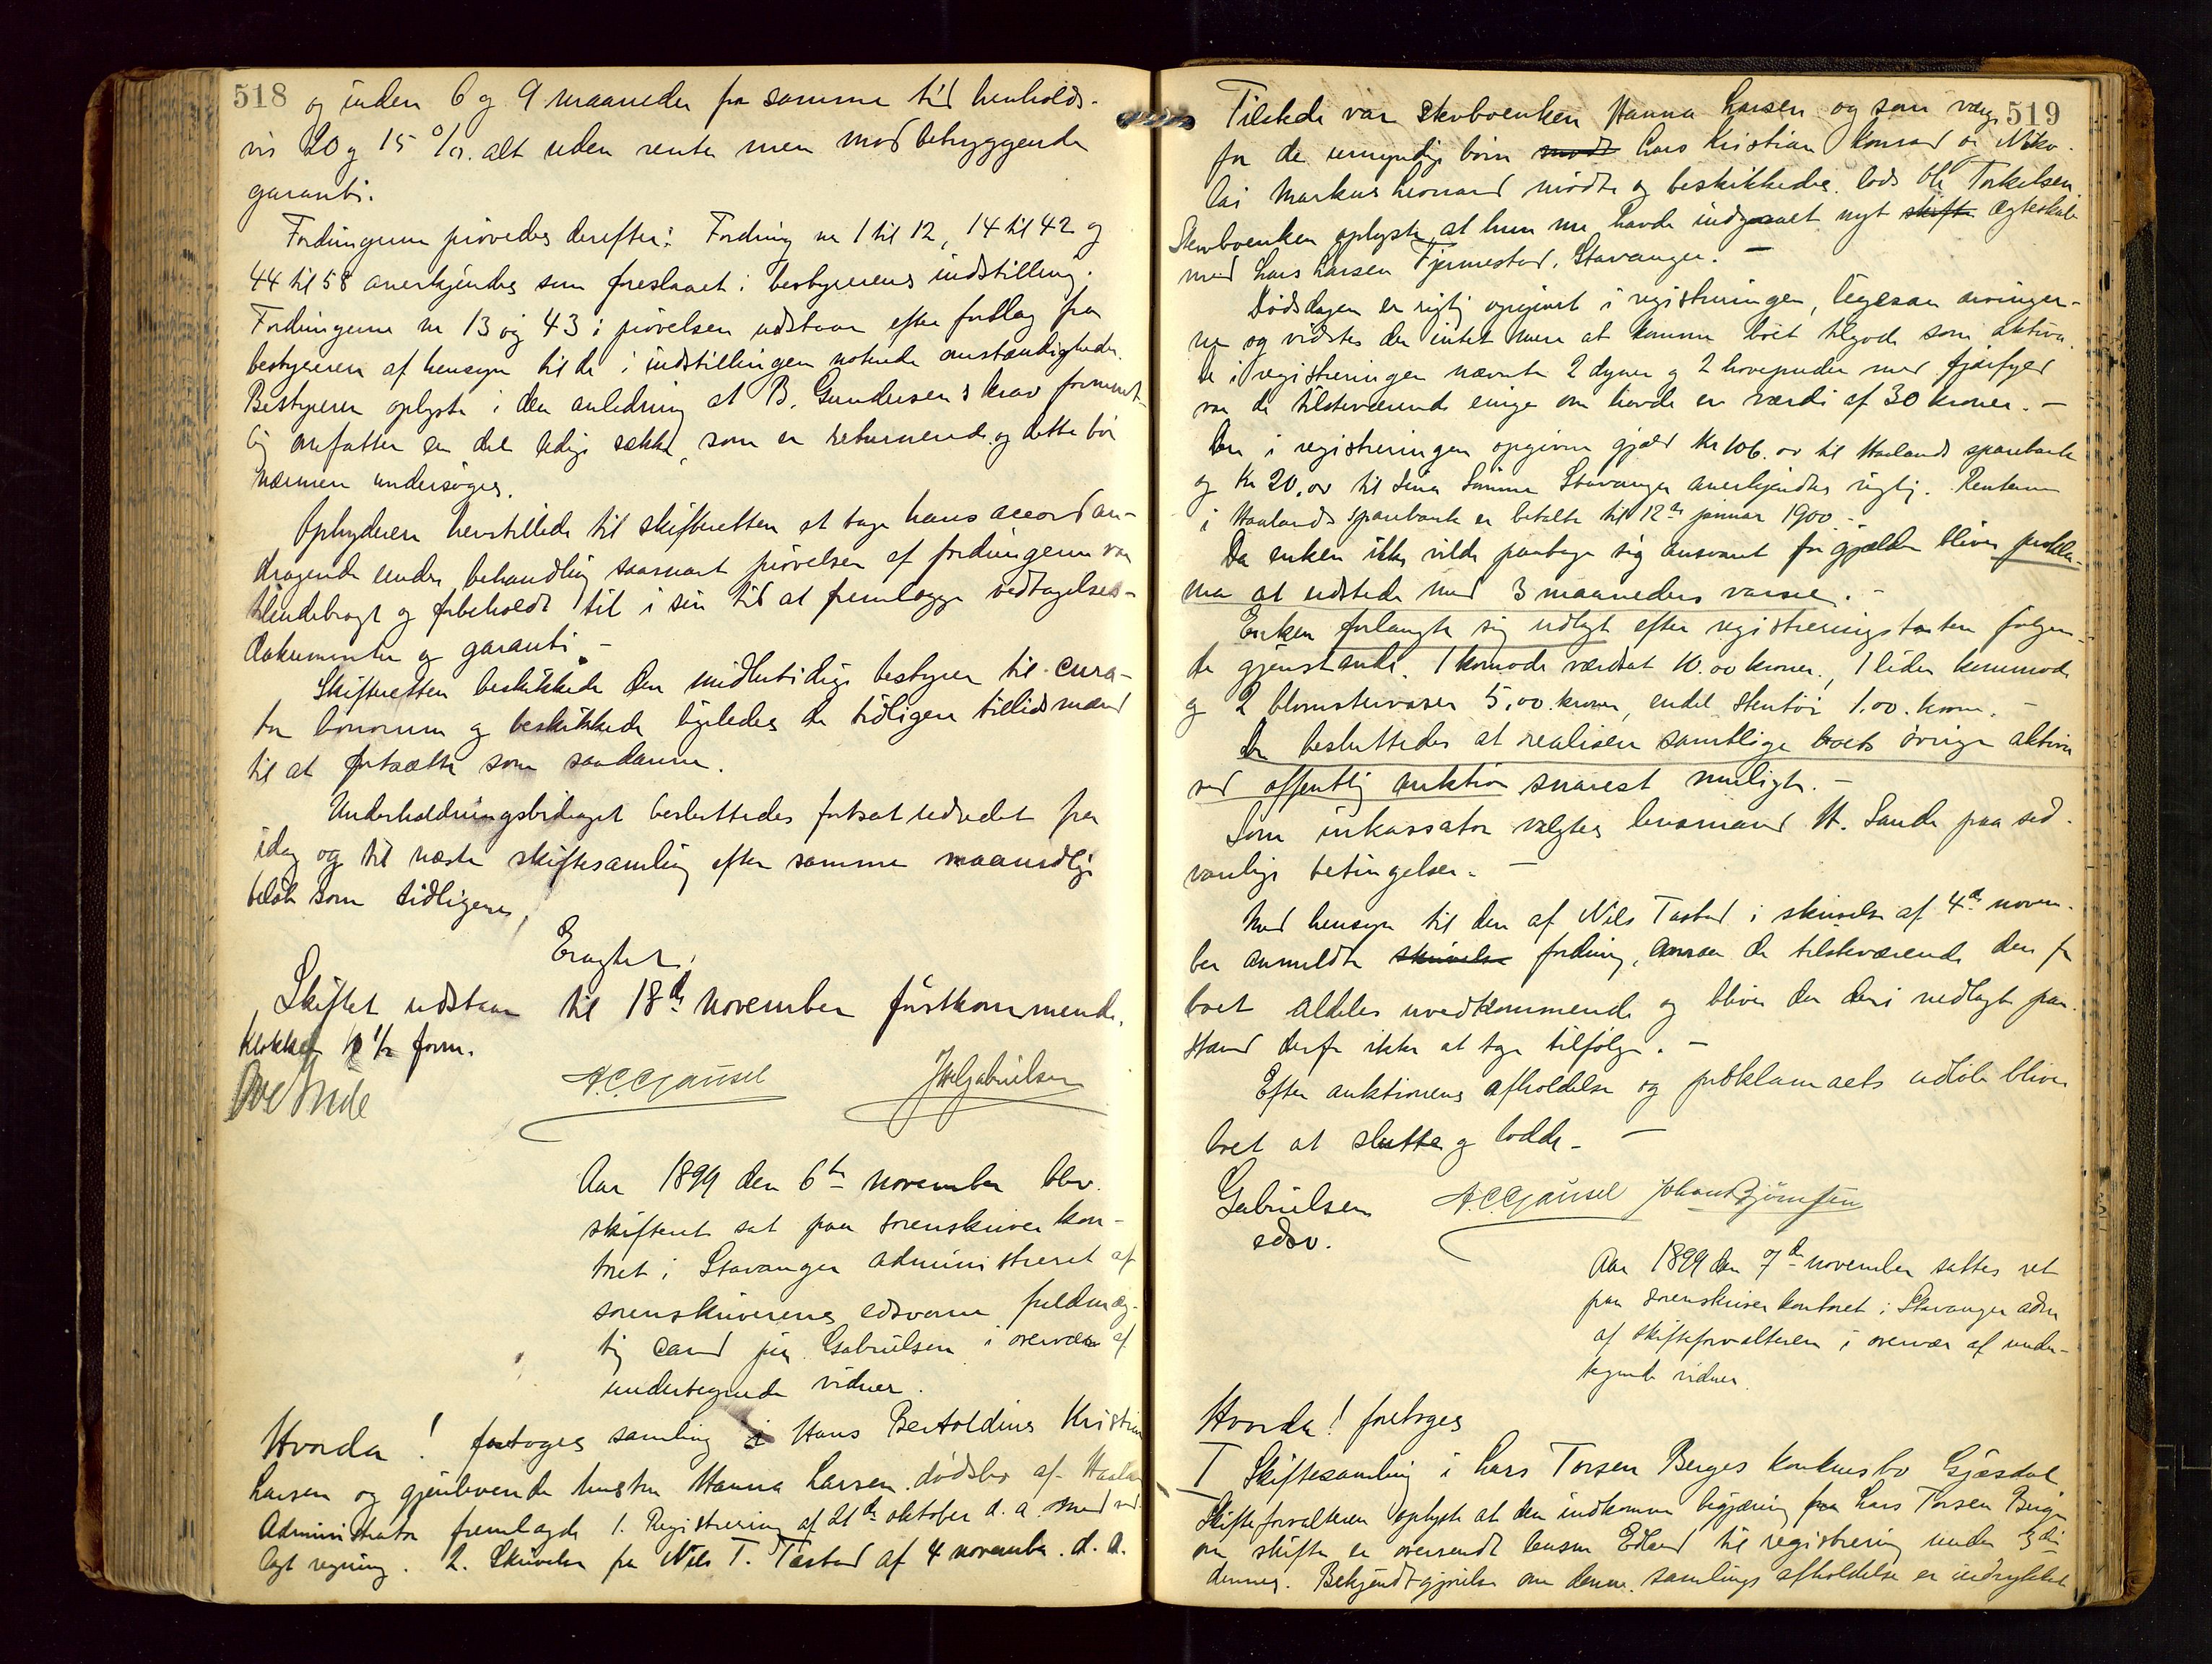 518
og inden 6 og 9 maaneder fra samme tid henholds-
vis 20 og 15 %. alt uden rente men mod betryggende
garanti.
Fordringerne prøvedes derefter: Fordring nr 1 til 12, 14 til 42 og
44 til 58 anerkjendes som foreslaaet i bestyrerens indstilling.
Fordringerne nr 13 og 43 i prøvelsen udstaar efter forslag fra
bestyreren af hensyn til de i indstillingen nævnte omstændigheder.
Bestyreren oplyste i den anledning at B. Gundersens krav forment-
lig omfatter en del ledige sække, som er returnerede og dette bør
nærmere undersøges.
Opbyderen henstillede til skifteretten at tage hans accordan-
dragende under behandling saasnart prøvelsen af fordringerne var
tilendebragt og forbeholdt til i sin tid at fremlægge vedtagelses-
dokumenter og garanti. -
Skifteretten beskikkede den midlertidige bestyrer til cura-
tor bonorum og beskikkede ligeledes de tidligere tillidsmænd
til at fortsætte som saadanne.
Underholdningsbidraget besluttedes fortsat udredet fra
idag og til næste skiftesamling efter samme maanedlige
beløb som tidligere.
Eragtet:
Skiftet udstaar til 18de november førstkommende.
Klokken 10 1/2 form.
A.C. Gausel Gabrielsen
Aar 1899 den 6te november blev
skifteret sat paa sorenskriver kon-
toret i Stavanger administreret af
sorenskriverens edsvorne fuldmæg-
tig cand jur Gabrielsen i overvær af
undertegnede vidner.
Hvorda! foretoges samling i Hans Bertoldius Kristian
Larsen og gjenlevende hustru Hanna Larsen dødsbo af
Administrator fremlagde 1. Registrering af 21de oktober d. a. med ved
lagt regning. 2. Skrivelse fra Nils T. Tastad af 4 november d. a.
519
Tilstede var Stervboenken Hanna Larsen og som værge
for de umyndige børn mødte Lars Kristian Konrad og Niko-
lai Markus Leonard mødte og beskikkedes lods Ole Torkelsen.
Stervboenken oplyste at hun nu havde indgaaet nyt skifte ægteskab
med Lars Larsen Tjemestad, Stavanger. -
Dødsdagen er rigtig opgivet i registreringen, ligesaa arvinger-
ne og vidstes der intet mere at komme boet tilgode som aktiva.
De i registreringen nævnte 2 dyner og 2 hovepuder med fjærfyld
var de tilstedeværende enige om havde en værdi af 30 kroner. -
Den i registreringen opgivne gjæld kr 106.00 til Haalands sparebank
og kr 20.00 til Sømme Stavanger anerkjendtes rigtig. Renterne
i Haalands sparebank er betalte til 12te januar 1900. -
Da enken ikke vilde paatage sig ansvaret for gjælden bliver prokla-
ma at udstede med 3 maaneders varsel. -
Enken forlangte sig udlagt efter registreringstaksten følgen-
de gjenstande. 1 komode værdsat 10.00 kroner, 1 liden kommode
og 2 blomstervaser 5.00 kroner, endel stentøi 1.00 krone. -
Der besluttedes at realisere samtlige boets øvrige aktiva
ved offentlig auktion snarest muligt. -
Som inkassator valgtes lensmand H. Sande paa sed-
vanlige betingelser. -
Med hensyn til den af Nils Tastad i skrivelse af 4de novem-
ber anmeldte skrivelse fordring, ansaa de tilstedeværende den for
boet aldeles uvedkommende og bliver den deri nedlagte paa-
stand derfor ikke at tage tilfølge. -
Efter auktionens afholdelse og proklamaets udløb bliver
boet at slutte og lodde. -
Gabrielsen A.C. Gausel Johan Bjørnsen
edsv.
Aar 1899 den 7de november sattes ret
paa sorenskriver kontoret i Stavanger adm
af skifteforvalteren i overvær af under-
tegnede vidner.
Hvorda! foretoges
T Skiftesamling i Lars Torsen Berges konkursbo Gjæsdal
Skifteforvalteren oplyste at den indkomne begjæring fra Lars Torsen Berge
om skifte er oversendt lensm Edland til registrering under
dennes. Bekjendtgjørelse om denne samlings afholdelse er indrykket